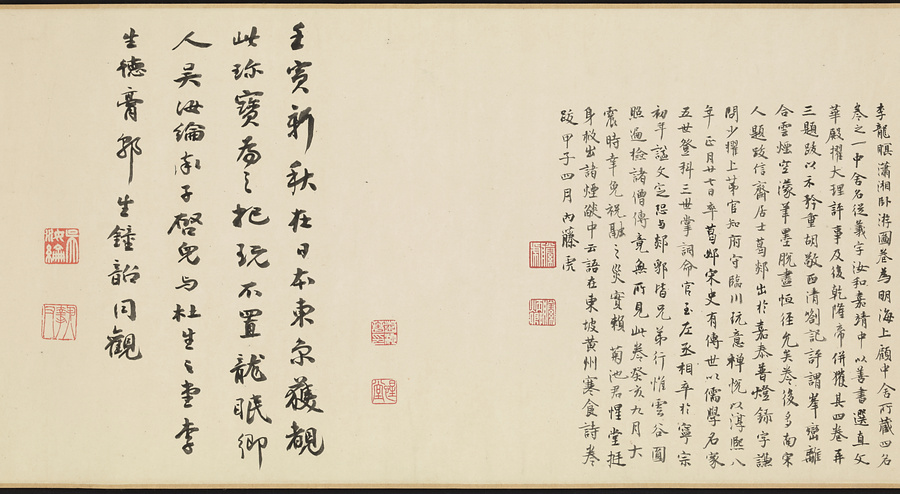 李龍瞑瀟湘臥游圖卷為明海上顧中舍所藏四名
卷之一中舍名從義字汝和嘉靖中以善書選直文
華殿擢大理評事及後乾隆帝併獲其四卷再
三題跋以示矜重胡敬西清劄記評謂峯巒離
合雲煙空濛筆墨脫盡恒徑允矣卷後多南宋
人題跋信齋居士葛郯出於嘉泰普燈錄字謙
問少擢上第官知府守臨川玩意禪悅以淳熙八
年正月廿七日卒葛郯宋史有傳世以儒學名家
五世登科三世掌詞命官至左丞相卒於寧宗
初年諡文定思与郯郭皆兄弟行惟雲谷圓
照遍檢諸僧傳竟無所見此卷癸亥九月大
震時幸免祝融之災實賴菊池君惺堂挺
身救出諸煙燄中云語在東坡黃州寒食詩卷
跋甲子四月內藤虎
壬寅新秋在日本東京獲覩
此珍寶為之把玩不置龍眠卿
人吳汝綸率子啓兒与杜生之堂李
生德膏郭生鍾韶同觀
吳汝綸
惺堂